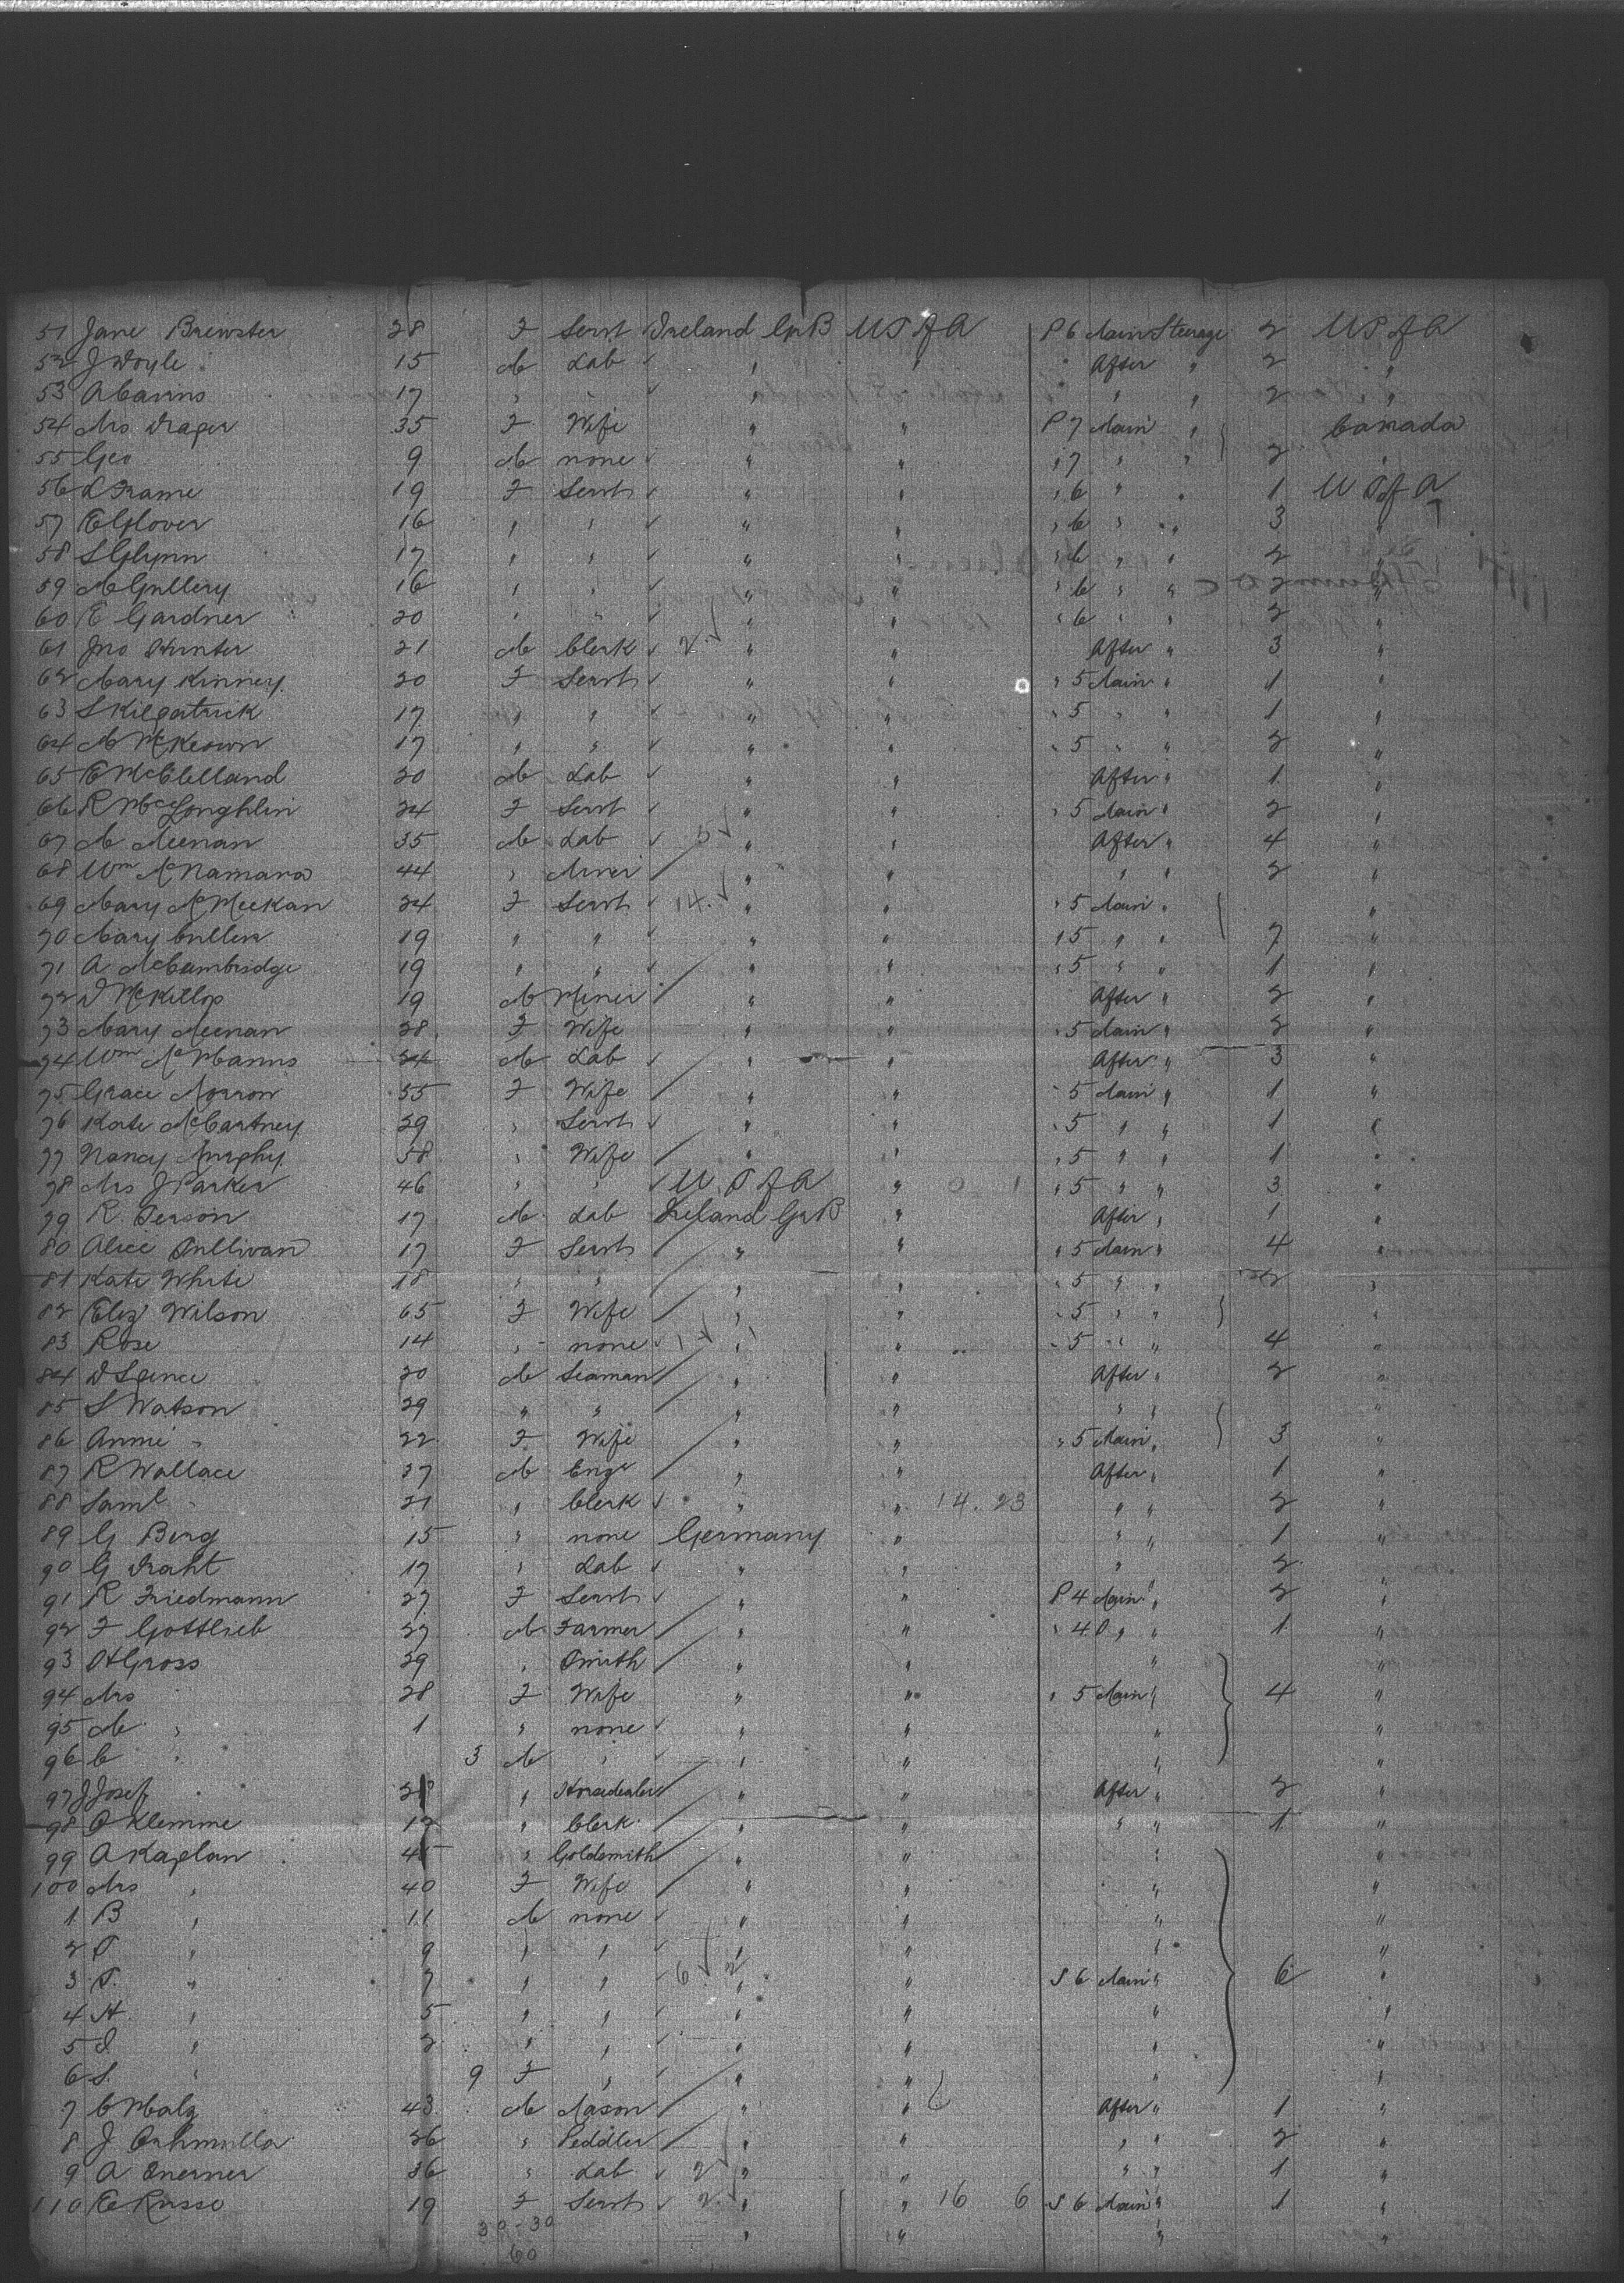 51 Jane Brewster 28 F Servt Ireland Gr B U S of A P 6 Main Steerage 2 U S of A
52 J Doyle 15 M Lab " " " After " 2 "
53 A Cairns 17 " " " " " " 2 "
54 Mrs Draper 35 F Wife " " P 7 Main " Canada
55 Geo 9 M none " " " 7 " " 2 "
56 L Frame 19 F Servt " " " 6 " " 1 U S of A
57 E Glover 16 " " " " " 6 " " 3 "
58 S Glynn 17 " " " " " 6 " " 2 "
59 M Gullery 16 " " " " " 6 " " 2 "
60 E Gardner 20 " " " " " 6 " " 2 "
61 Jno Hunter 21 M Clerk 2 " " After " 3 "
62 Mary Kinney 20 F Servt " " " 5 Main " 1 "
63 S Kilpatrick 17 " " " " " 5 " " 1 "
64 M McKeown 17 " " " " " 5 " " 2 "
65 E McClelland 20 M Lab " " After " 1 "
66 R McLoughlin 24 F Servt " " " 5 Main " 2 "
67 M Meenan 35 M Lab " " After " 4 "
68 Wm McNamara 44 " Miner " " " " 2 "
69 Mary McMeekan 24 F Servt 14 " " " 5 Main " "
70 Mary Cullen 19 " " " " " 5 " " 7 "
71 A McCambridge 19 " " " " " 5 " " 1 "
72 D McKillop 19 M Miner " " After " 2 "
73 Mary Meenan 28 F Wife " " " 5 Main " 2 "
74 Wm McManus 24 M Lab " " After " 3 "
75 Grace Morron 55 F Wife " " " 5 Main " 1 "
76 Kate McCartney 29 " Servt " " " 5 " " 1 "
77 Nancy Murphy 58 " Wife " " " 5 " " 1 "
78 Mrs J Parker 46 " " U S of A " 0 1 " 5 " " 3 "
79 R Person 17 M Lab Ireland Gr B " After " 1 "
80 Alice Sullivan 17 F Servt " " " 5 Main " 4 "
81 Kate White 18 " " " " " 5 " " 2 "
82 Eliz Wilson 65 F Wife " " " 5 " " "
83 Rose 14 " none 1 " " " 5 " " 4 "
84 D Spence 20 M Seaman " " After " 2 "
85 S Watson 29 " " " " " " "
86 Annie " 22 F Wife " " " 5 Main " 3 "
87 R Wallace 37 M Engr " " After " 1 "
88 Saml " 21 " Clerk " " 14. 23 " " 2 "
89 G Berg 15 " none Germany " " " 1 "
90 G Draht 17 " Lab " " " " 2 "
91 R Friedmann 27 F Servt " " P 4 Main " 2 "
92 F Gottlieb 27 M Farmer " " " 4 " " 1 "
93 H Gross 29 " Smith " " " "
94 Mrs " 28 F Wife " " " 5 Main " 4 "
95 M " 1 " none " " " "
96 C " 3 M " " " " "
97 J Josef " Horsedealer " " After " 2 "
98 O Klemme " Clerk " " " " 1 "
99 A Kaplan 45 " Goldsmith " " " "
100 Mrs " 40 F Wife " " " "
1 B " 11 M none " " " "
2 S " 9 " " " " " "
3 S. " 7 " " 6 2 " " S 6 Main " 6 "
4 H " 5 " " " " " "
5 I. " 2 " " " " " "
6 S. " 9 F " " " " "
7 C Malz 43 M Mason " " 6 After " 1 "
8 J " Peddler " " " " 2 "
9 A 36 " Lab 2 " " " " 1 "
110 E Russo 19 F Servt 2 " " 16 6 S 6 Main " 1 "
30-30 " " " "
60